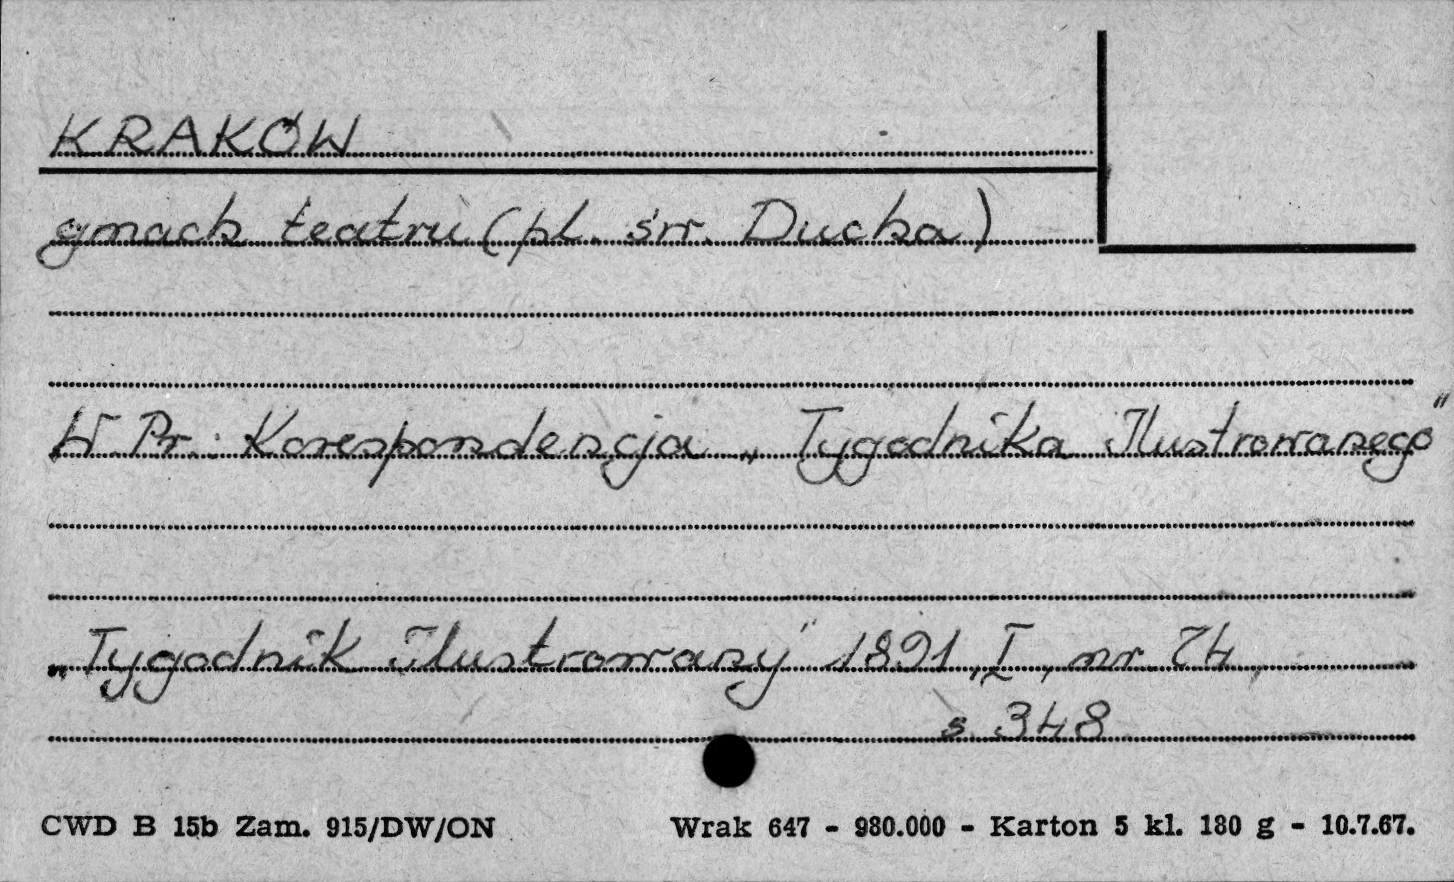 KRAKÓW
gmach teatru (pl. św. Ducha)
W. Pr.: Korespondencja „Tygodnika Ilustrowanego"
„Tygodnik Ilustrowany" 1891, I, nr 74,
s. 348
CWD B 15b Zam. 915/DW/ON
Wrak 647 - 980.000 - Karton 5 kl. 180 g - 10.7.67.